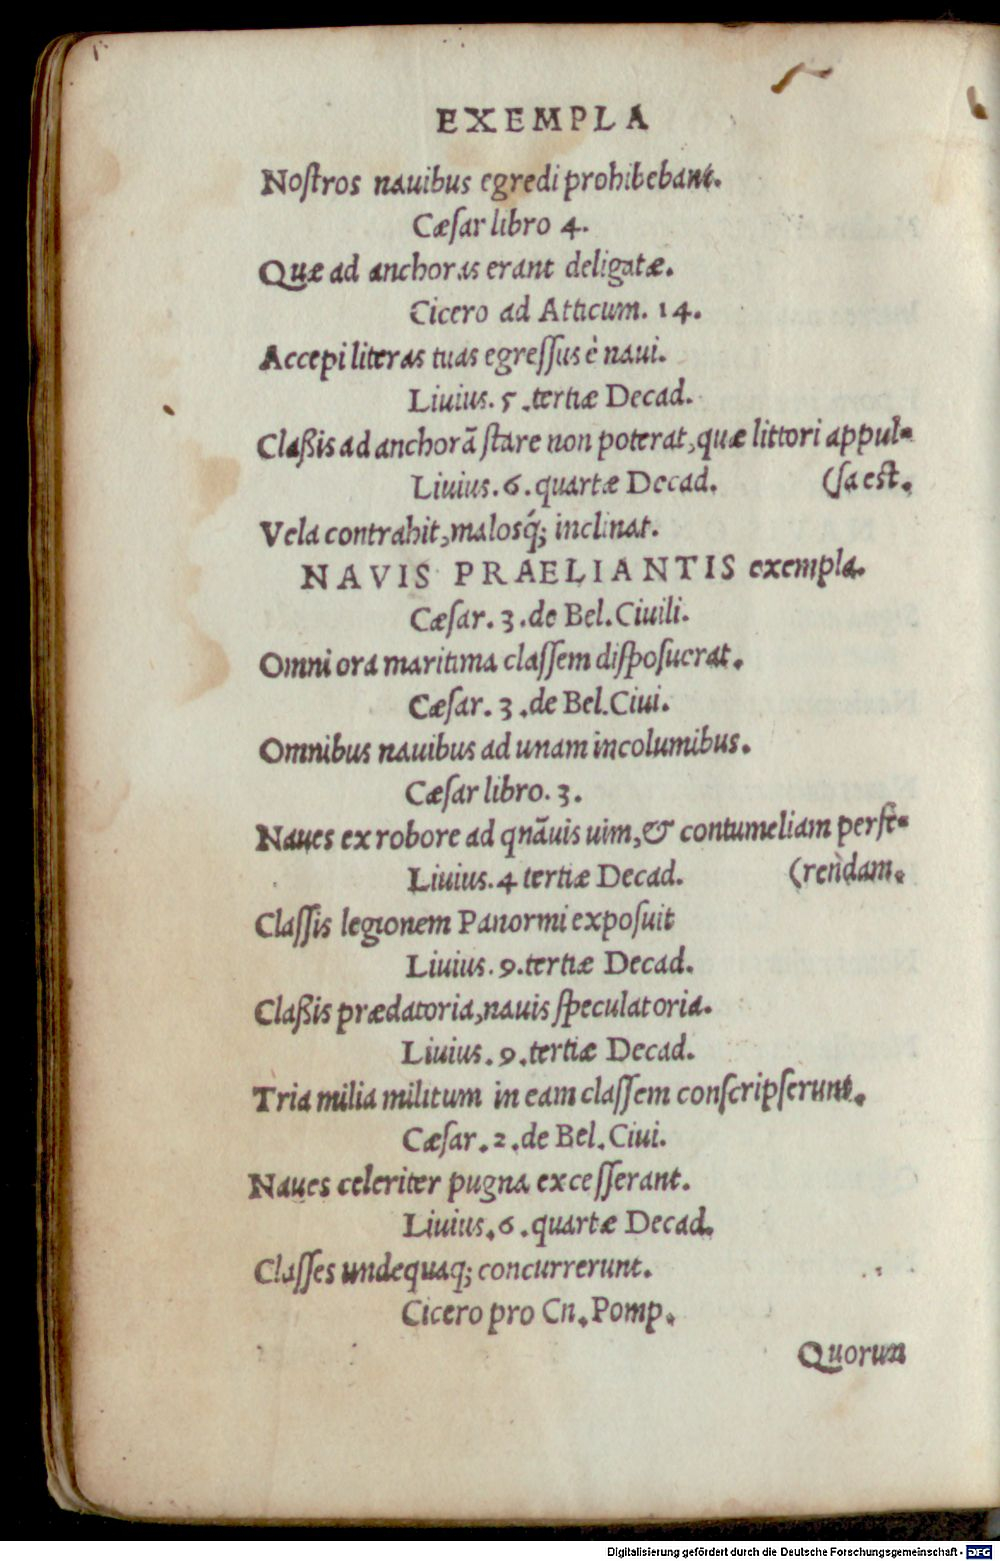 EXEMPLA
Noſtros nauibus egredi prohibebant.
Cæſar libro 4.
Quæ ad anchoras erant deligatæ.
Cicero ad Atticum. 14.
Accepi literas tuas egreſſus è naui.
Liuius. 5 .tertiæ Decad.
Claßis ad anchorā ſtare non poterat, quæ littori appul-
Liuius. 6. quartæ Decad. (ſa eſt.
Vela contrahit, malosq́; inclinat.
NAVIS PRAELIANTIS exempla.
Cæſar. 3 .de Bel. Ciuili.
Omni ora maritima claſſem diſpoſuerat.
Cæſar. 3 .de Bel. Ciui.
Omnibus nauibus ad unam incolumibus.
Cæſar libro. 3.
Naues ex robore ad qnāuis uim, & contumeliam perfe-
Liuius. 4 tertiæ Decad. (rendam.
Claſſis legionem Panormi expoſuit
Liuius. 9. tertiæ Decad.
Claßis prædatoria, nauis ſpeculatoria.
Liuius. 9 .tertiæ Decad.
Tria milia militum in eam claſſem conſcripſerunt.
Cæſar. 2 .de Bel. Ciui.
Naues celeriter pugna exceſſerant.
Liuius. 6 . quartæ Decad.
Claſſes undequaq; concurrerunt.
Cicero pro Cn. Pomp.
Quorun
Digitalisierung gefördert durch die Deutsche Forschungsgemeinschaft - DFG